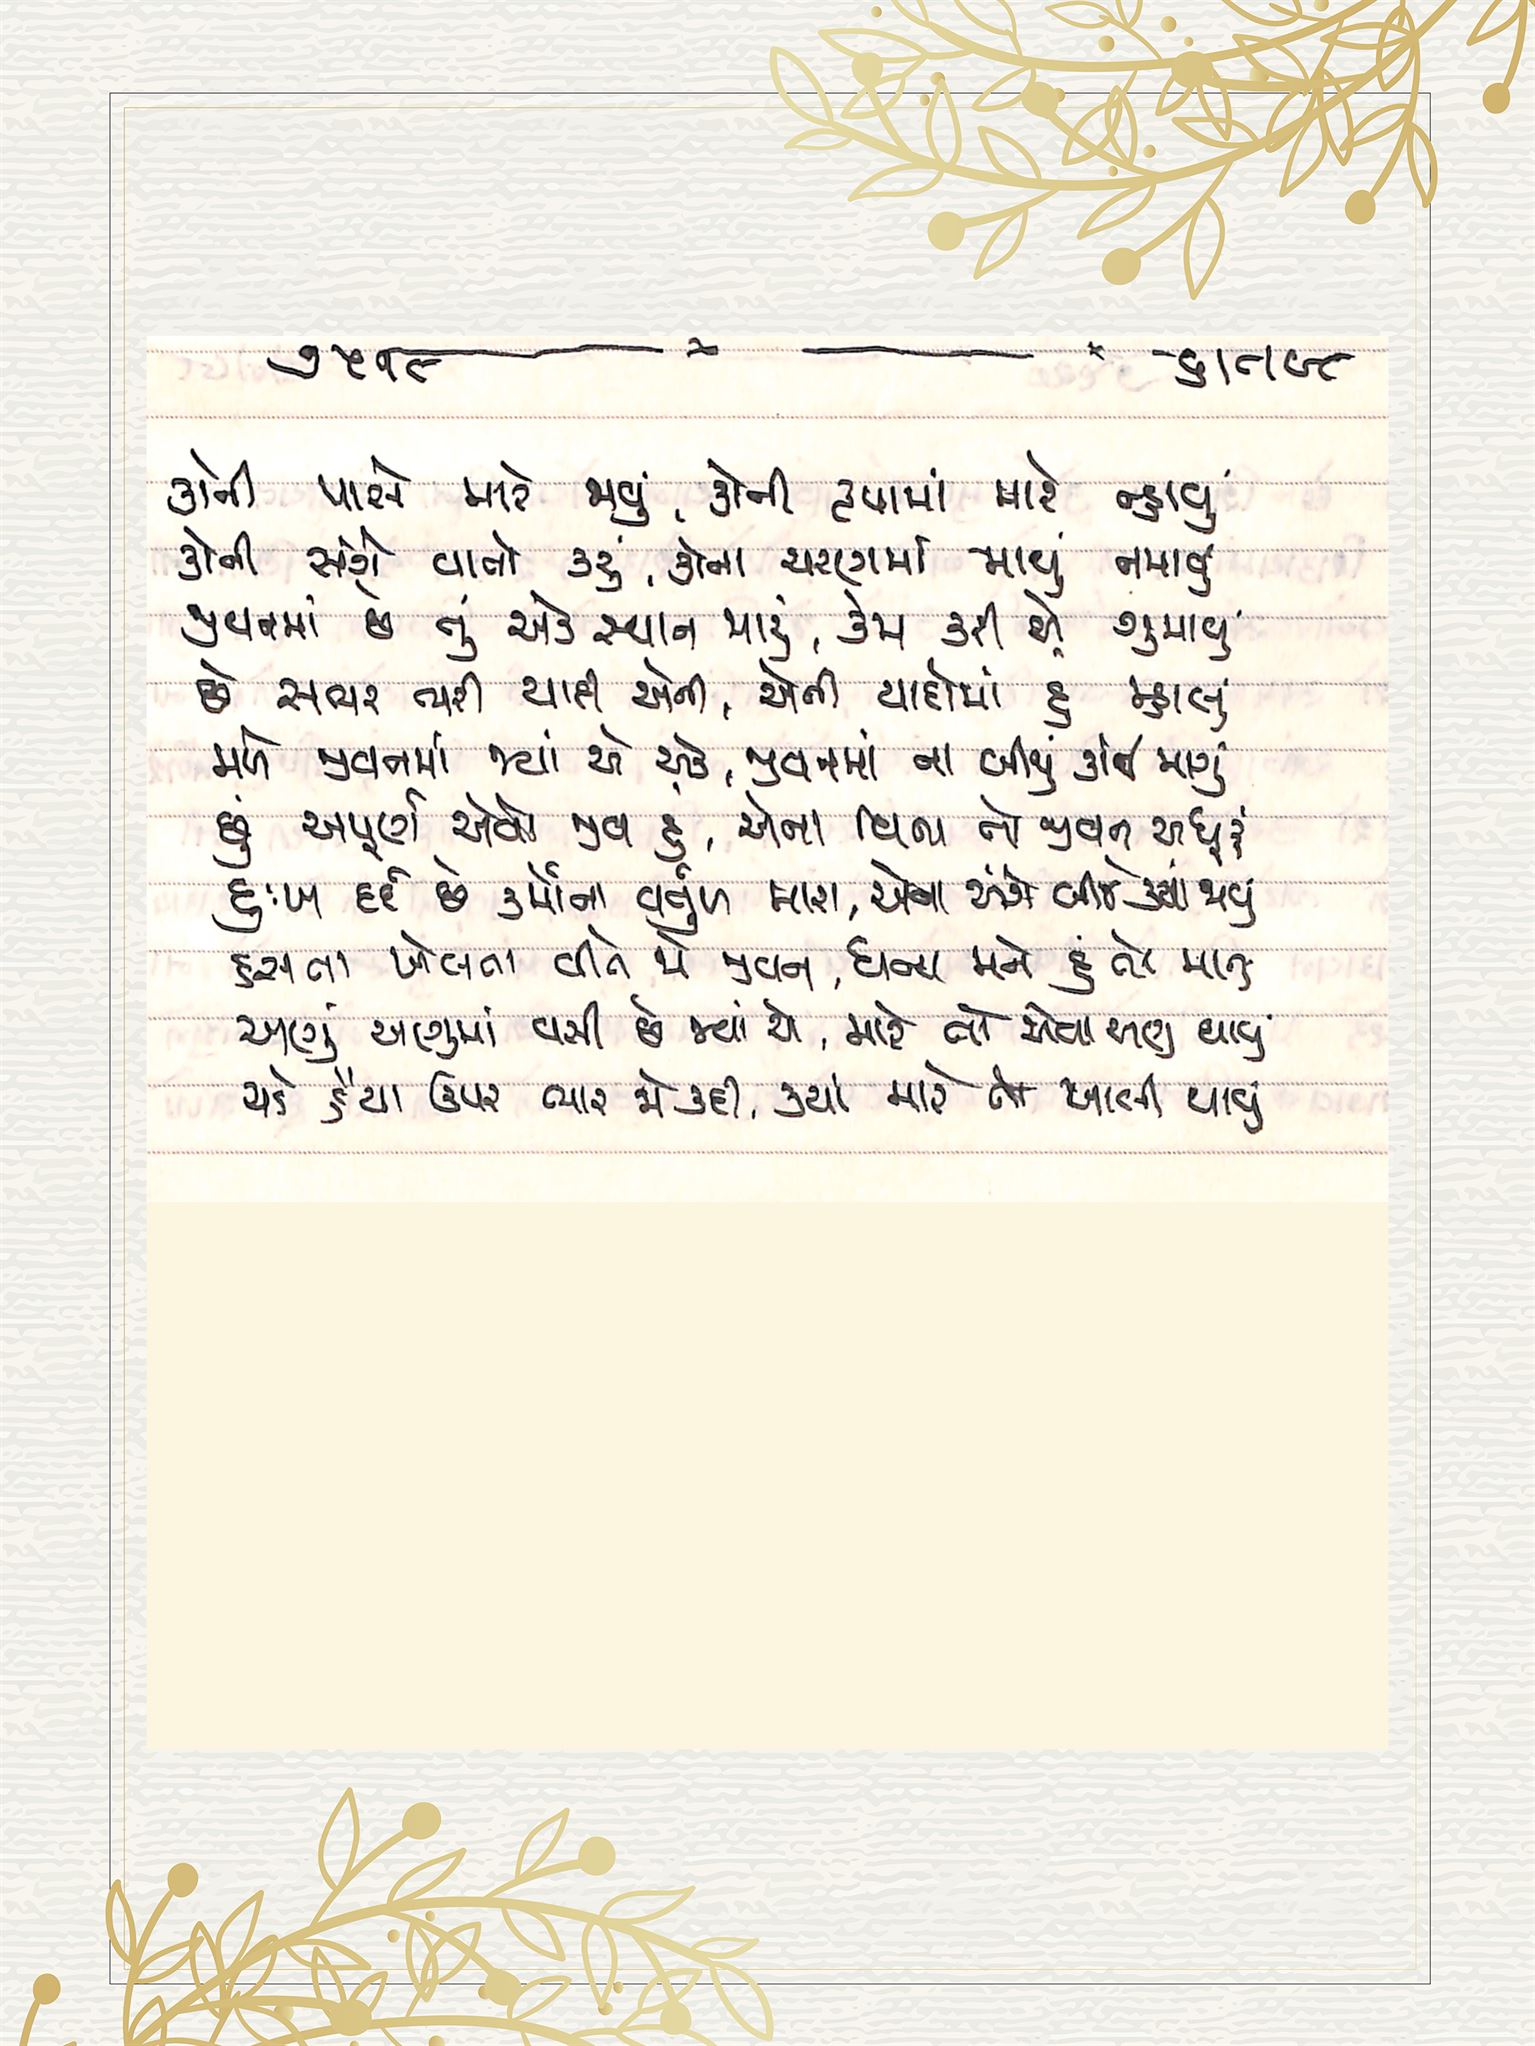 ૭૫૧૯ × × કાનબર
કોની પાસે મારે જાવું, કોની કૃપામાં મારે ન્હાવું
કોની સંગે વાતો કરું, કોના ચરણમાં માથું નમાવું
જીવનમાં છે તું એક સ્થાન મારું, કેમ કરી એ ગુમાવું
છે સભર ભરી યાદી એની, એની યાદોમાં હું મ્હાલું
મળે જીવનમાં જ્યાં એ એક, જીવનમાં ના બીજું કોઈ માગું
છું અપૂર્ણ એવો જીવ હું, એના વિના તો જીવન અધૂરું
દુઃખ દર્દ છે કર્મોના વર્તુળ મારા, એના સંગે બીજે ક્યાં જાવું
હસતા ખેલતા વીતે જો જીવન, ધન્ય મને હું તો માનું
અણું અણુમાં વસી છે જ્યાં એ, મારે તો એવા અણુ થાવું
ચડે હૈયા ઉપર ભાર જો કદી, ક્યાં મારે તો ખાલી થાવું